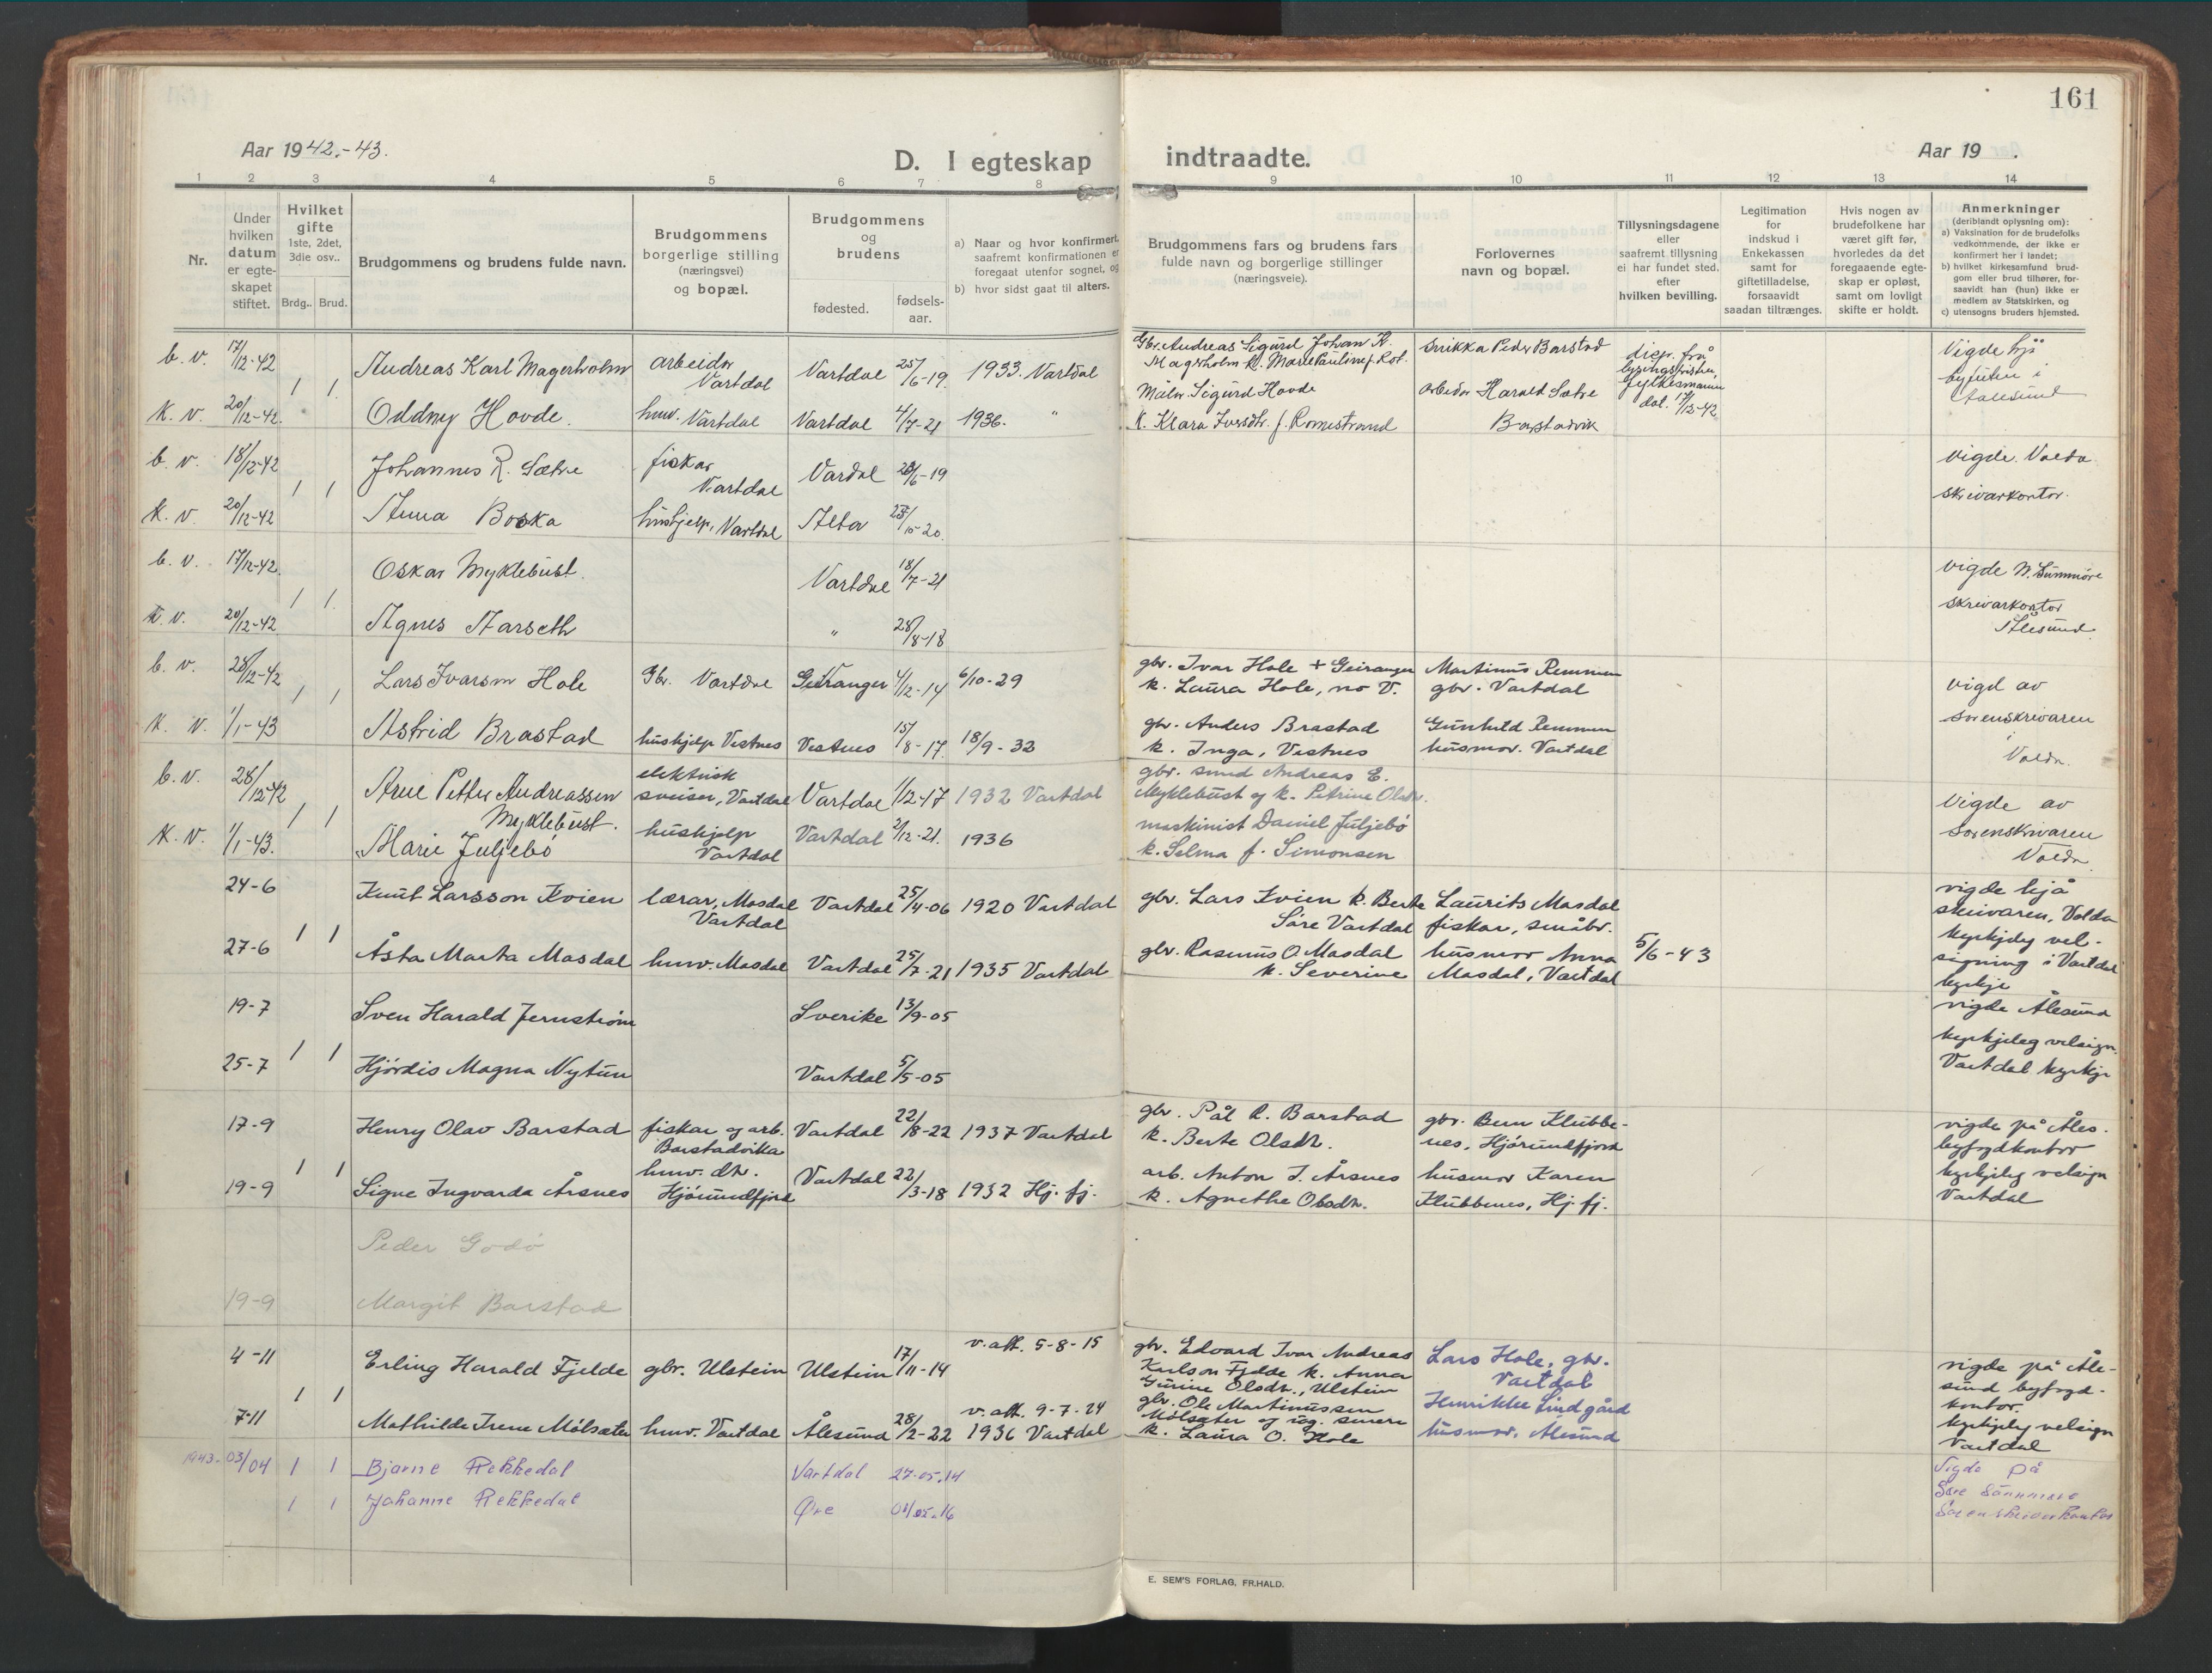 161
Aar 1942.-43.
D. I egteskap indtraadte.
Aar 19 .
1 2 3 4 5 6 7 8 9 10 11 12 13 14
Nr.
Under
hvilken
datum
er egte-
skapet
stiftet.
Hvilket
gifte
1ste, 2det,
3die osv..
Brdg.. Brud.
Brudgommens og brudens fulde navn.
Brudgommens
borgerlige stilling
(næringsvei)
og bopæl.
Brudgommens
og
brudens
fødested.
fødsels-
aar.
a) Naar og hvor konfirmert,
saafremt konfirmationen er
foregaat utenfor sognet, og
b) hvor sidst gaat til alters.
Brudgommens fars og brudens fars
fulde navn og borgerlige stillinger
(næringsveie).
Forlovernes
navn og bopæl.
Tillysningsdagene
eller
saafremt tillysning
ei har fundet sted.
efter
hvilken bevilling.
Legitimation
for
indskud i
Enkekassen
samt for
giftetilladelse,
forsaavidt
saadan tiltrænges.
Hvis nogen av
brudefolkene har
været gift før,
hvorledes da det
foregaaende egte-
skap er opløst,
samt om lovligt
skifte er holdt.
Anmerkninger
(deriblandt oplysning om):
a) Vaksination for de brudefolks
vedkommende, der ikke er
konfirmert her i landet;
b) hvilket kirkesamfund brud-
gom eller brud tilhører, for-
saavidt han (hun) ikke er
medlem av Statskirken, og
c) utensogns bruders hjemsted.
b. v. 17/12-42 1 1 Andreas Karl Magerholm arbeidar Vartdal Vartdal 25/6-19. 1933. Vartdal
Gbr. Andreas Sigurd Johan K.
Magerholm k. Marie Pauline f. Rot.
Snikka Peder Barstad
disp. frå
lysingsfristen,
fylkesmann
dat. 17/12-42
Vigde hjå
byfuten i
Aalesund
K. v. 20/12-42. Oddny Hovde. huv. Vartdal Vartdal 4/7-21 1936. "
Målar Sigurd Hovde
k. Klara Iversdtr. f. Romestrand
arbeidar Harald Sætre
Barstadvik
b. v. 18/12-42 1 1 Johannes R. Sætre fiskar Vartdal Vardal 28/6-19
vigde. Volda
skrivarkontor.
K. v. 20/12-42 Anna Boska hushjelp, Vartdal Alta 23/10-20.
b. v. 17/12-42. 1 1 Oskar Myklebust. Vartdal 18/7-21
vigde N. Sunnmøre
skrivarkontor
Ålesund.
K. v. 20/12-42 Agnes Aarseth " 28/8-18
b. v. 28/12-42 1 1 Lars Ivarsen Hole Gbr. Vartdal Geiranger 4/12-14 6/10-29
gbr. Ivar Hole + Geiranger
k. Laura Hole, no V.
Martinus Remmen
gbr. Vartdal
vigd av
sorenskrivaren
i
Volda.
K. V. 1/1-43 Astrid Brastad hushjelp Vestnes Vestnes 15/8-17. 18/9-32
gbr. Anders Brastad
k. Inga, Vestnes
Gunhild Remmen
husmor. Vartdal
b. v. 28/12-42 1 1 Arne Petter Andreassen Myklebust. elektrisk sveiser, Vartdal Vartdal 1/12-17 1932 Vartdal
gbr. smed Andreas E.
Myklebust og k. Petrine Olsdtr.
Vigde av
Sorenskrivaren
Volda.
K. V. 1/1-43. Marie Juljebø hushjelp Vartdal Vartdal 2/12-21. 1936
maskinist Daniel Juljebø
k. Selma f. Simonsen
24-6 1 1 Knut Larsson Kvien lærar, Masdal Vartdal Vartdal 25/4-06 1920 Vartdal
gbr. Lars Kvien k. Berte
Søre Vartdal
Laurits Masdal
fiskar, småbr.
vigde hjå
skrivaren, Volda
kyrkjeleg vel-
signing i Vartdal
kyrkje
27-6 Åsta Marta Masdal huv. Masdal Vartdal 25/7-21 1935 Vartdal
gbr. Rasmus O. Masdal
k. Severine
husmor Anna
Masdal, Vartdal
5/6-43
19-7 1 1 Sven Harald Jernstrøm Sverike 13/9-05
vigde Ålesund
kyrkjeleg velsign.
Vartdal kyrkje
25-7 Hjørdis Magna Nytun Vartdal 5/5-05
17-9 1 1 Henry Olav Barstad fiskar og arb. Barstadvika Vartdal 22/8-22 1937 Vartdal
gbr. Pål R. Barstad
k. Berte Olsdtr.
gbr. Klubbe-
nes, Hjørundfjord
vigde på Åles.
byfogdkontor
kyrkjeleg velsign
Vartdal
19-9 Signe Ingvarda Årsnes huv. dtr. Hjørundfjord Vartdal 22/3-18 1932 Hj. fj.
arb. Anton I. Årsnes
k. Agnethe Olsdtr.
husmor Karen
Klubbenes, Hj. fj.
Peder Godø
19-9 Margit Barstad
4-11 1 1 Erling Harald Fjelde gbr. Ulstein Ulstein 17/11-14 v. att. 5-8-15
gbr. Edvard Ivar Andreas
Karlson Fjelde k. Anna
Gurine Olsdtr., Ulstein
Lars Hole, gbr.
Vartdal
vigde på Åle-
sund byfogd-
kontor.
kyrkjeleg velsign
Vartdal
7-11 Mathilde Irene Mølsæter huv. Vartdal Ålesund 28/2-22 v. att. 9-7-24 1936 Vartdal
gbr. Ole Martinussen
Mølsæter og
k. Laura O. Hole
Henrikke Lindgård
husmor, Ålesund
1943. 03/04 1 1 Bjarne Rekkedal Vartdal 27-05.14
Vigde på
Søre Sunnmøre
Sorenskriverkontor
1 1 Johanne Rekkedal Øre 01/05.16
E. SEM'S FORLAG, FR.HALD.